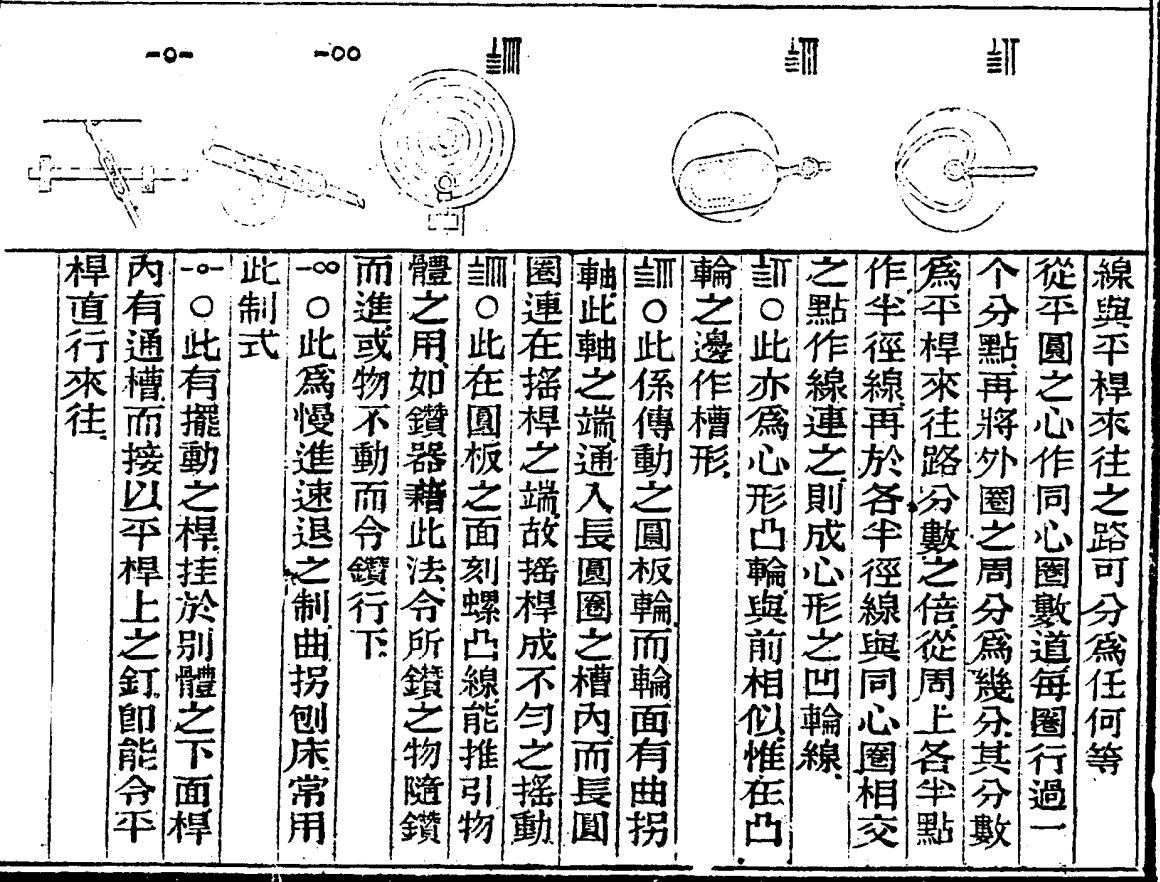 𝍱𝍦
𝍱𝍧
𝍱𝍨
一〇〇
一〇一
線與平桿來往之路可分爲任何等
從平圓之心作同心圈數道每圈行過一
个分點再將外圈之周分爲幾分其分數
爲平桿來往路分數之倍從周上各半點
作半徑線再於各半徑線與同心圈相交
之點作線連之則成心形之凹輪線
𝍱𝍦〇此亦爲心形凸輪與前相似惟在凸
輪之邊作槽形
𝍱𝍧〇此係傳動之圓板輪而輪面有曲拐
軸此軸之端通入長圓圈之槽內而長圓
圈連在搖桿之端故搖桿成不勻之搖動
𝍱𝍨〇此在圓板之面刻螺凸線能推引物
體之用如鑽器藉此法令所鑽之物隨鑽
而進或物不動而令鑽行下
一〇〇〇此爲慢進速退之制曲拐刨床常用
此制式
一〇一〇此有擺動之桿挂於別體之下面桿
內有通槽而接以平桿上之釘卽能令平
桿直行來往